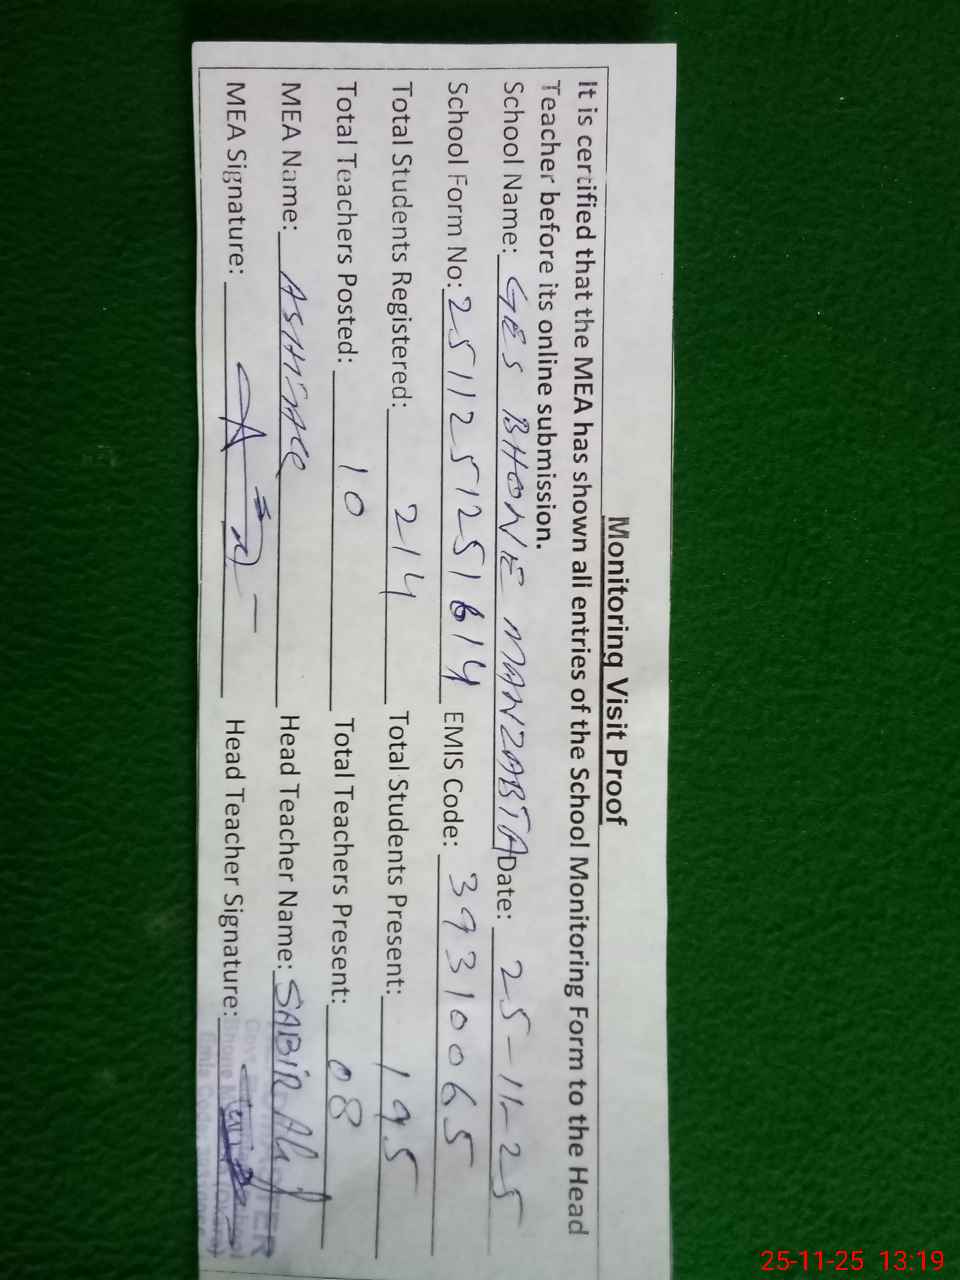 Monitoring Visit Proof
It is certified that the MEA has shown all entries of the School Monitoring Form to the Head
Teacher before its online submission.
School Name: GES BHONE MANZABTA Date: 25-11-25
School Form No: 2511251251614 EMIS Code: 39310065
Total Students Registered: 214 Total Students Present: 195
Total Teachers Posted: 10 Total Teachers Present: 08
MEA Name: Head Teacher Name: SABIR Ali
MEA Signature: Head Teacher Signature:
25-11-25 13:19